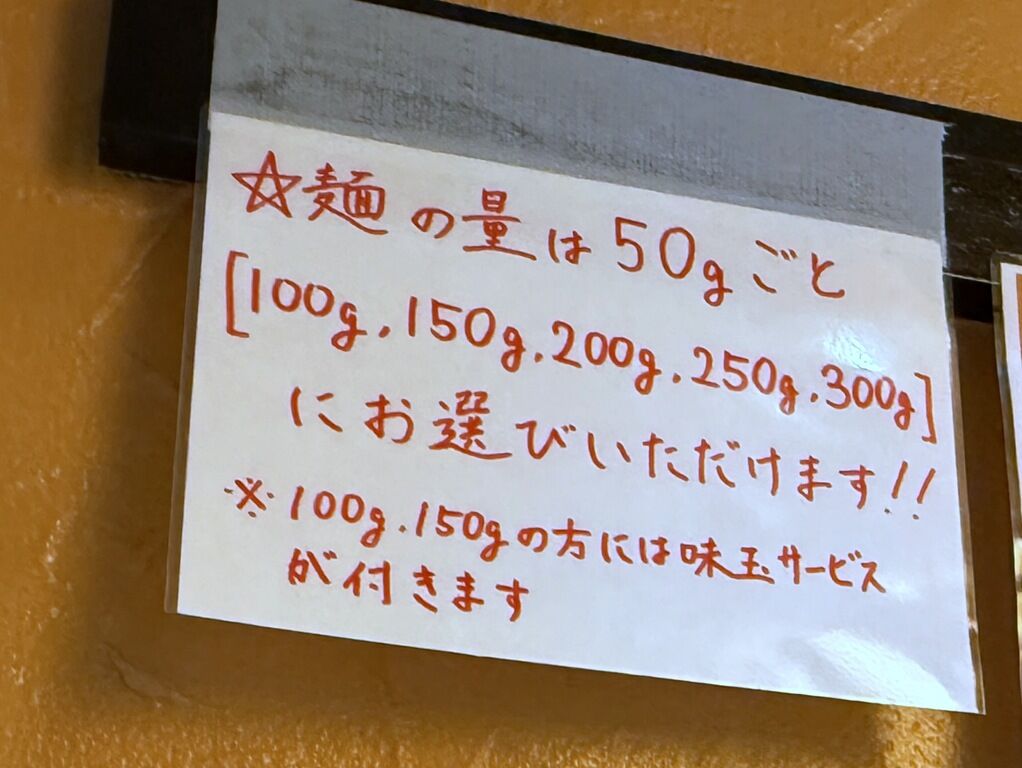 ☆麺の量は50gごと
[100g.150g.200g.250g.300g]
にお選びいただけます!!
※100g.150gの方には味玉サービス
が付きます